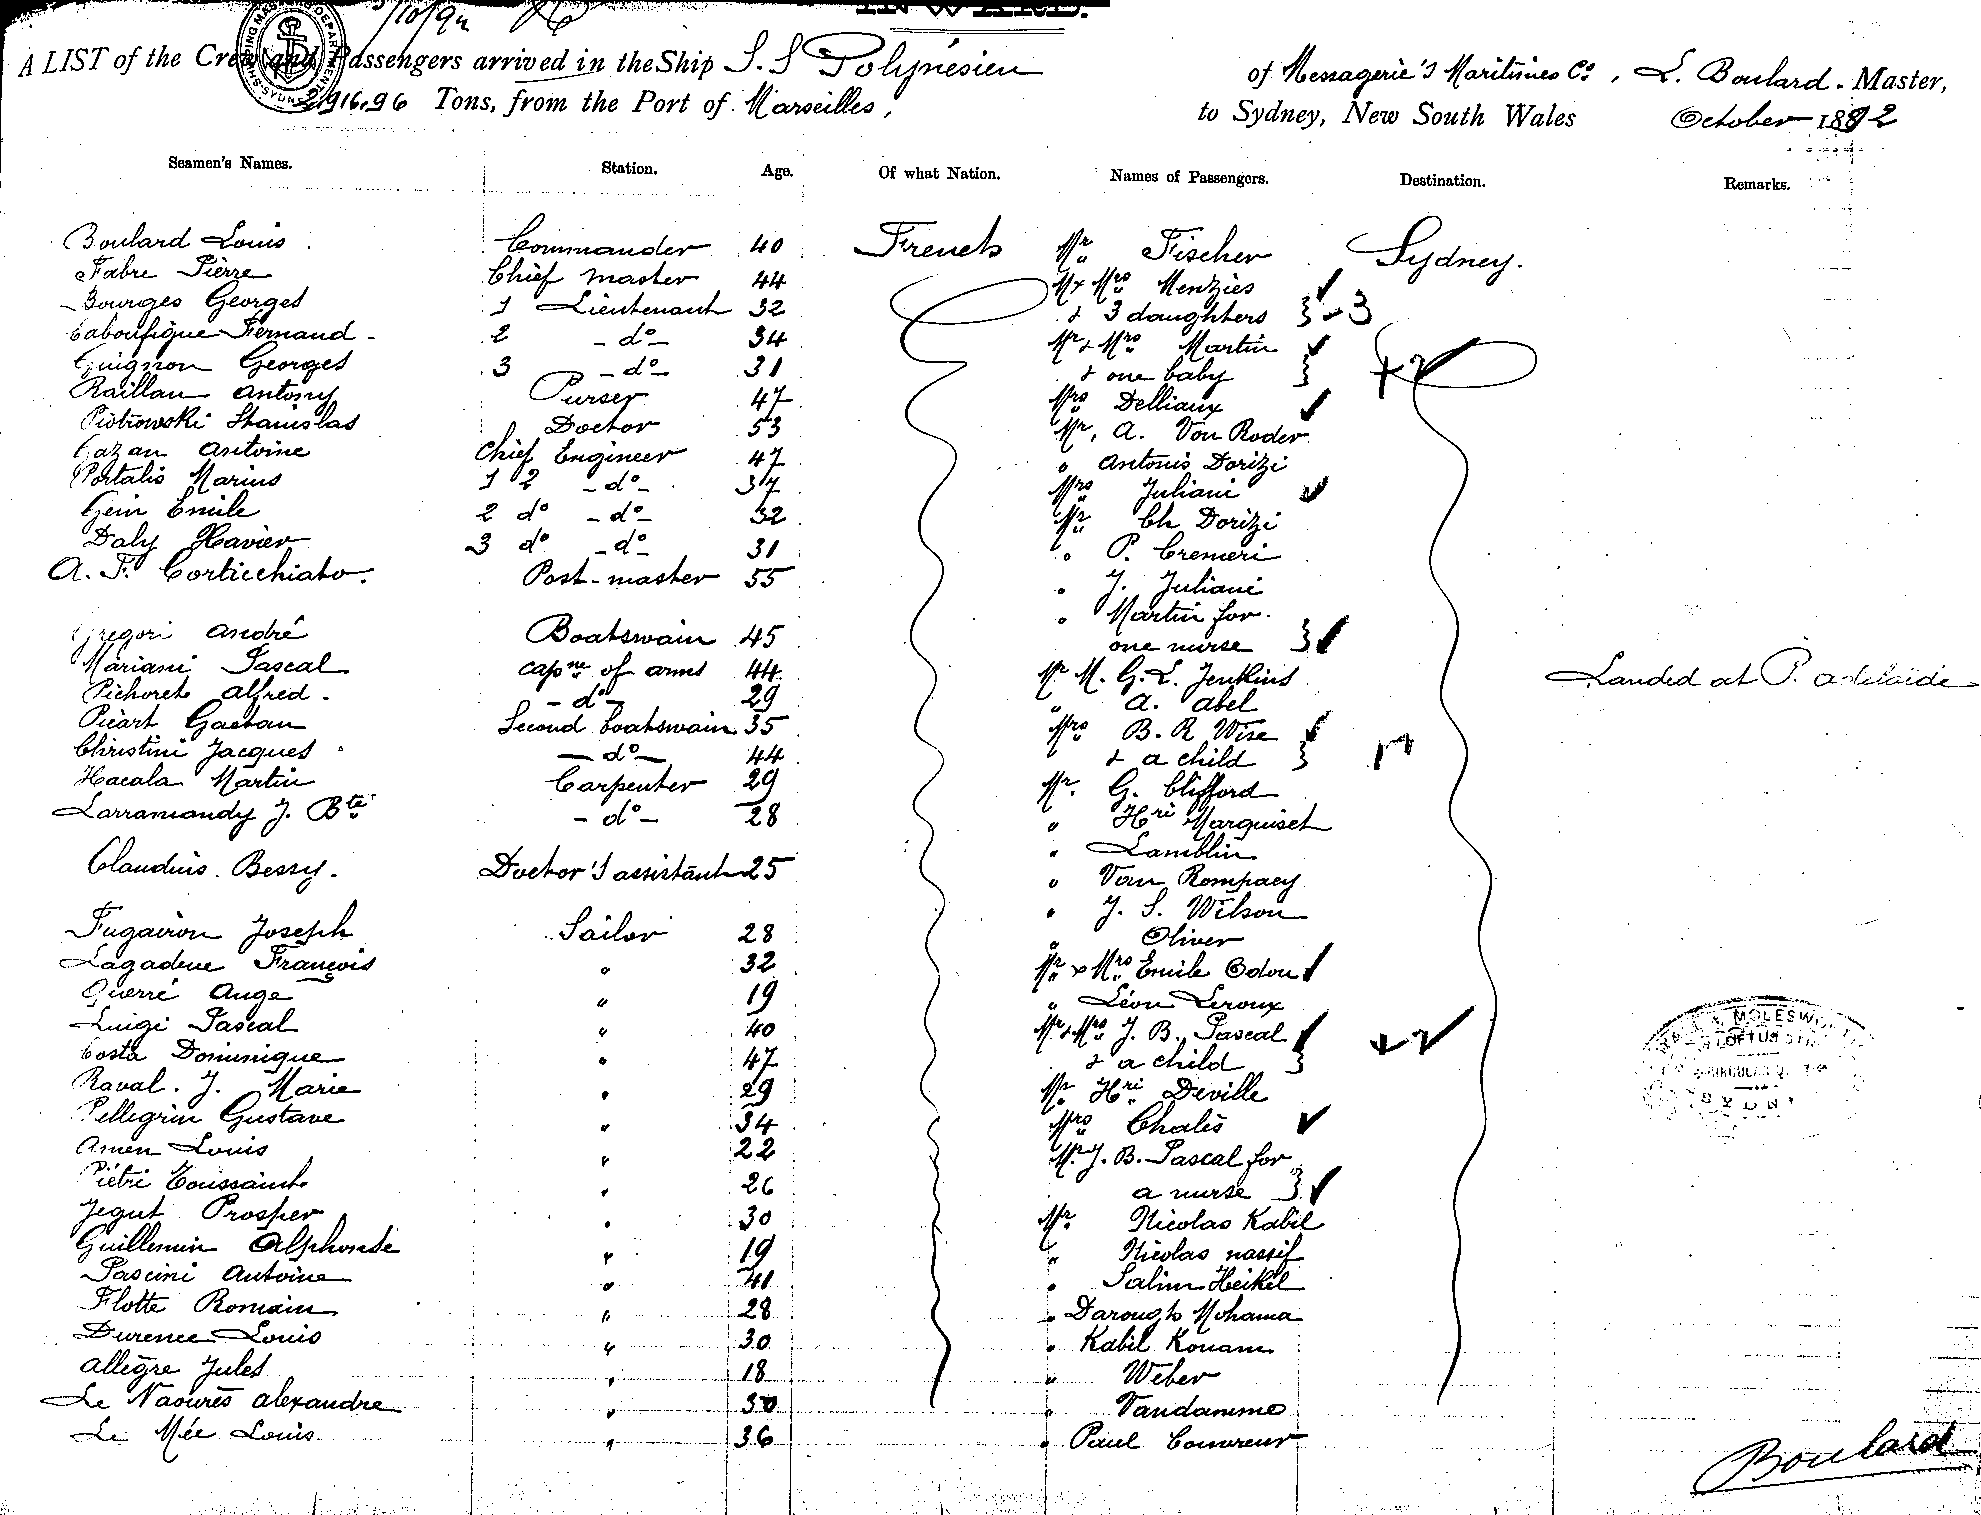 INWARD.
3/10/92
A LIST of the Crew and Passengers arrived in the Ship S.S Polynésien of Messagerie's Maritimes Co, L. Boulard. Master,
2916.96 Tons, from the Port of Marseilles, to Sydney, New South Wales October 1892
Seamen's Names. Station. Age. Of what Nation. Names of Passengers. Destination. Remarks.
Boulard Louis Commander 40 French Mr Fischer Sydney.
Fabre Pierre Chief master 44 Mr & Mrs Menzies
Bourges Georges 1 Lieutenant 32 & 3 daughters } - 3
Caboufigue Fernand - 2 - do - 34 Mr & Mrs Martin
Guignon Georges 3 - do - 31 & one baby } + 2
Raillan Antony Purser 47 Mrs Delliaux
Piotrowski Stanislas Doctor 53 Mr, A. Von Roder
Cazan Antoine Chief Engineer 47 " Antonis Dorizi
Portalis Marius 1 2 - do - 37 Mrs Juliani
Gein Emile 2 do - do - 32 Mr Ch Dorizi
Daly Xavier 3 do - do - 31 " P. Cremeri
A. F. Corticchiato. Post-master 55 " J. Juliani
" Martin for
Gregori André Boatswain 45 one nurse }
Mariani Pascal capne of arms 44 Mr M. G. L. Jenkins Landed at P. Adelaide
Pichoret Alfred - - do - 29 " A. Abel
Picart Gaetan Second boatswain 35 Mrs B. R Wise
Christini Jacques - do - 44 & a child }
Hacala Martin Carpenter 29 Mr. G. Clifford
Larramandy J. Bte - do - 28 " Hri Marquiset
" Lamblin
Claudius. Bessy. Doctor's assistant 25 " Van Rompaey
" J. S. Wilson
Fugairon Joseph Sailor 28 " Oliver
Lagadeuc François " 32 Mr & Mrs Emile Odou
Guerré Ange " 19 " Léon Leroux
Luigi Pascal " 40 Mr & Mrs J. B. Pascal
Costa Dominique " 47 & a child }
Raval. J. Marie " 29 Mr Hri Deville
Pellegrin Gustave " 34 Mrs Chalès
Amen Louis " 22 Mr. J. B. Pascal for
Piétri Toussaint " 26 a nurse }
Jegut Prosper " 30 Mr Nicolas Kabil
Guillemin Alphonse " 19 " Nicolas nassif
Pascini Antoine " 41 " Salim Heikel
Flotte Romain " 28 " Darough Mohama
Durence Louis " 30 " Kabil Kouam
Allègre Jules " 18 " Weber
Le Naourès Alexandre " 30 " Vandamme
Le Mée Louis " 36 " Paul Couvreur
Boulard